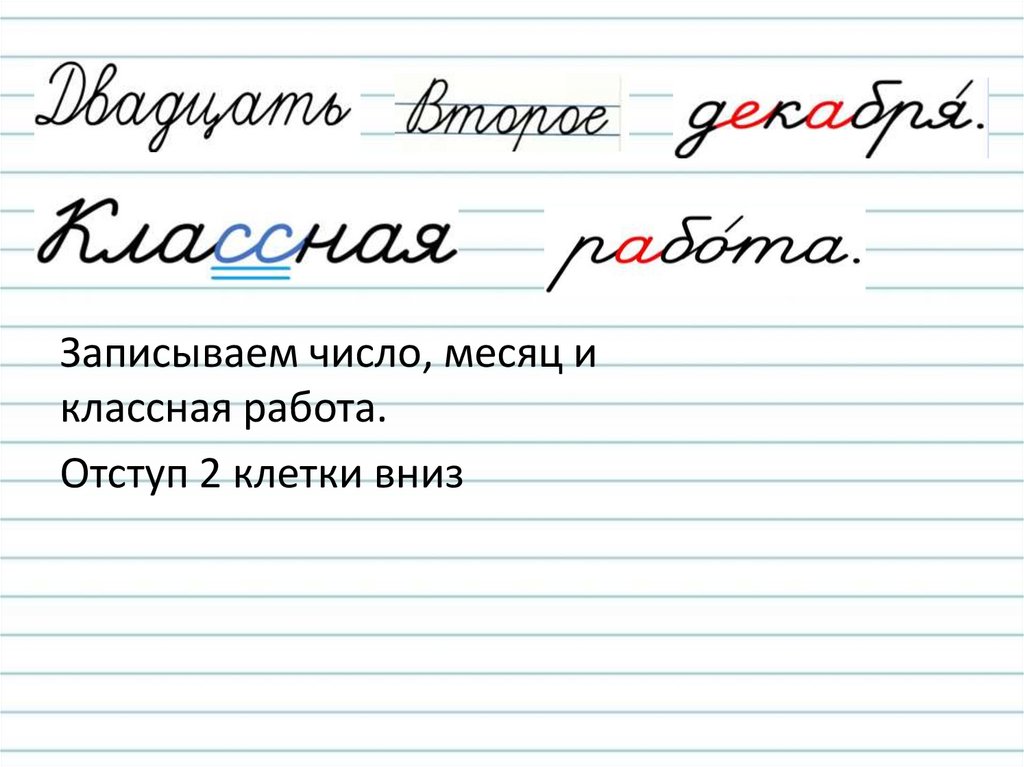 Двадцать Второе декабря́.
Классная рабо́та.
Записываем число, месяц и
классная работа.
Отступ 2 клетки вниз